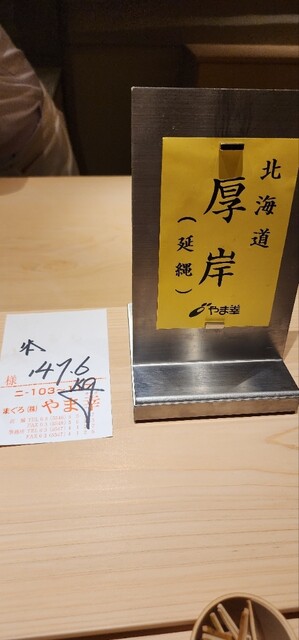 北海道
厚岸
(延縄)
やま幸
147.6
様
ニ-103
まぐろ(株)やま幸